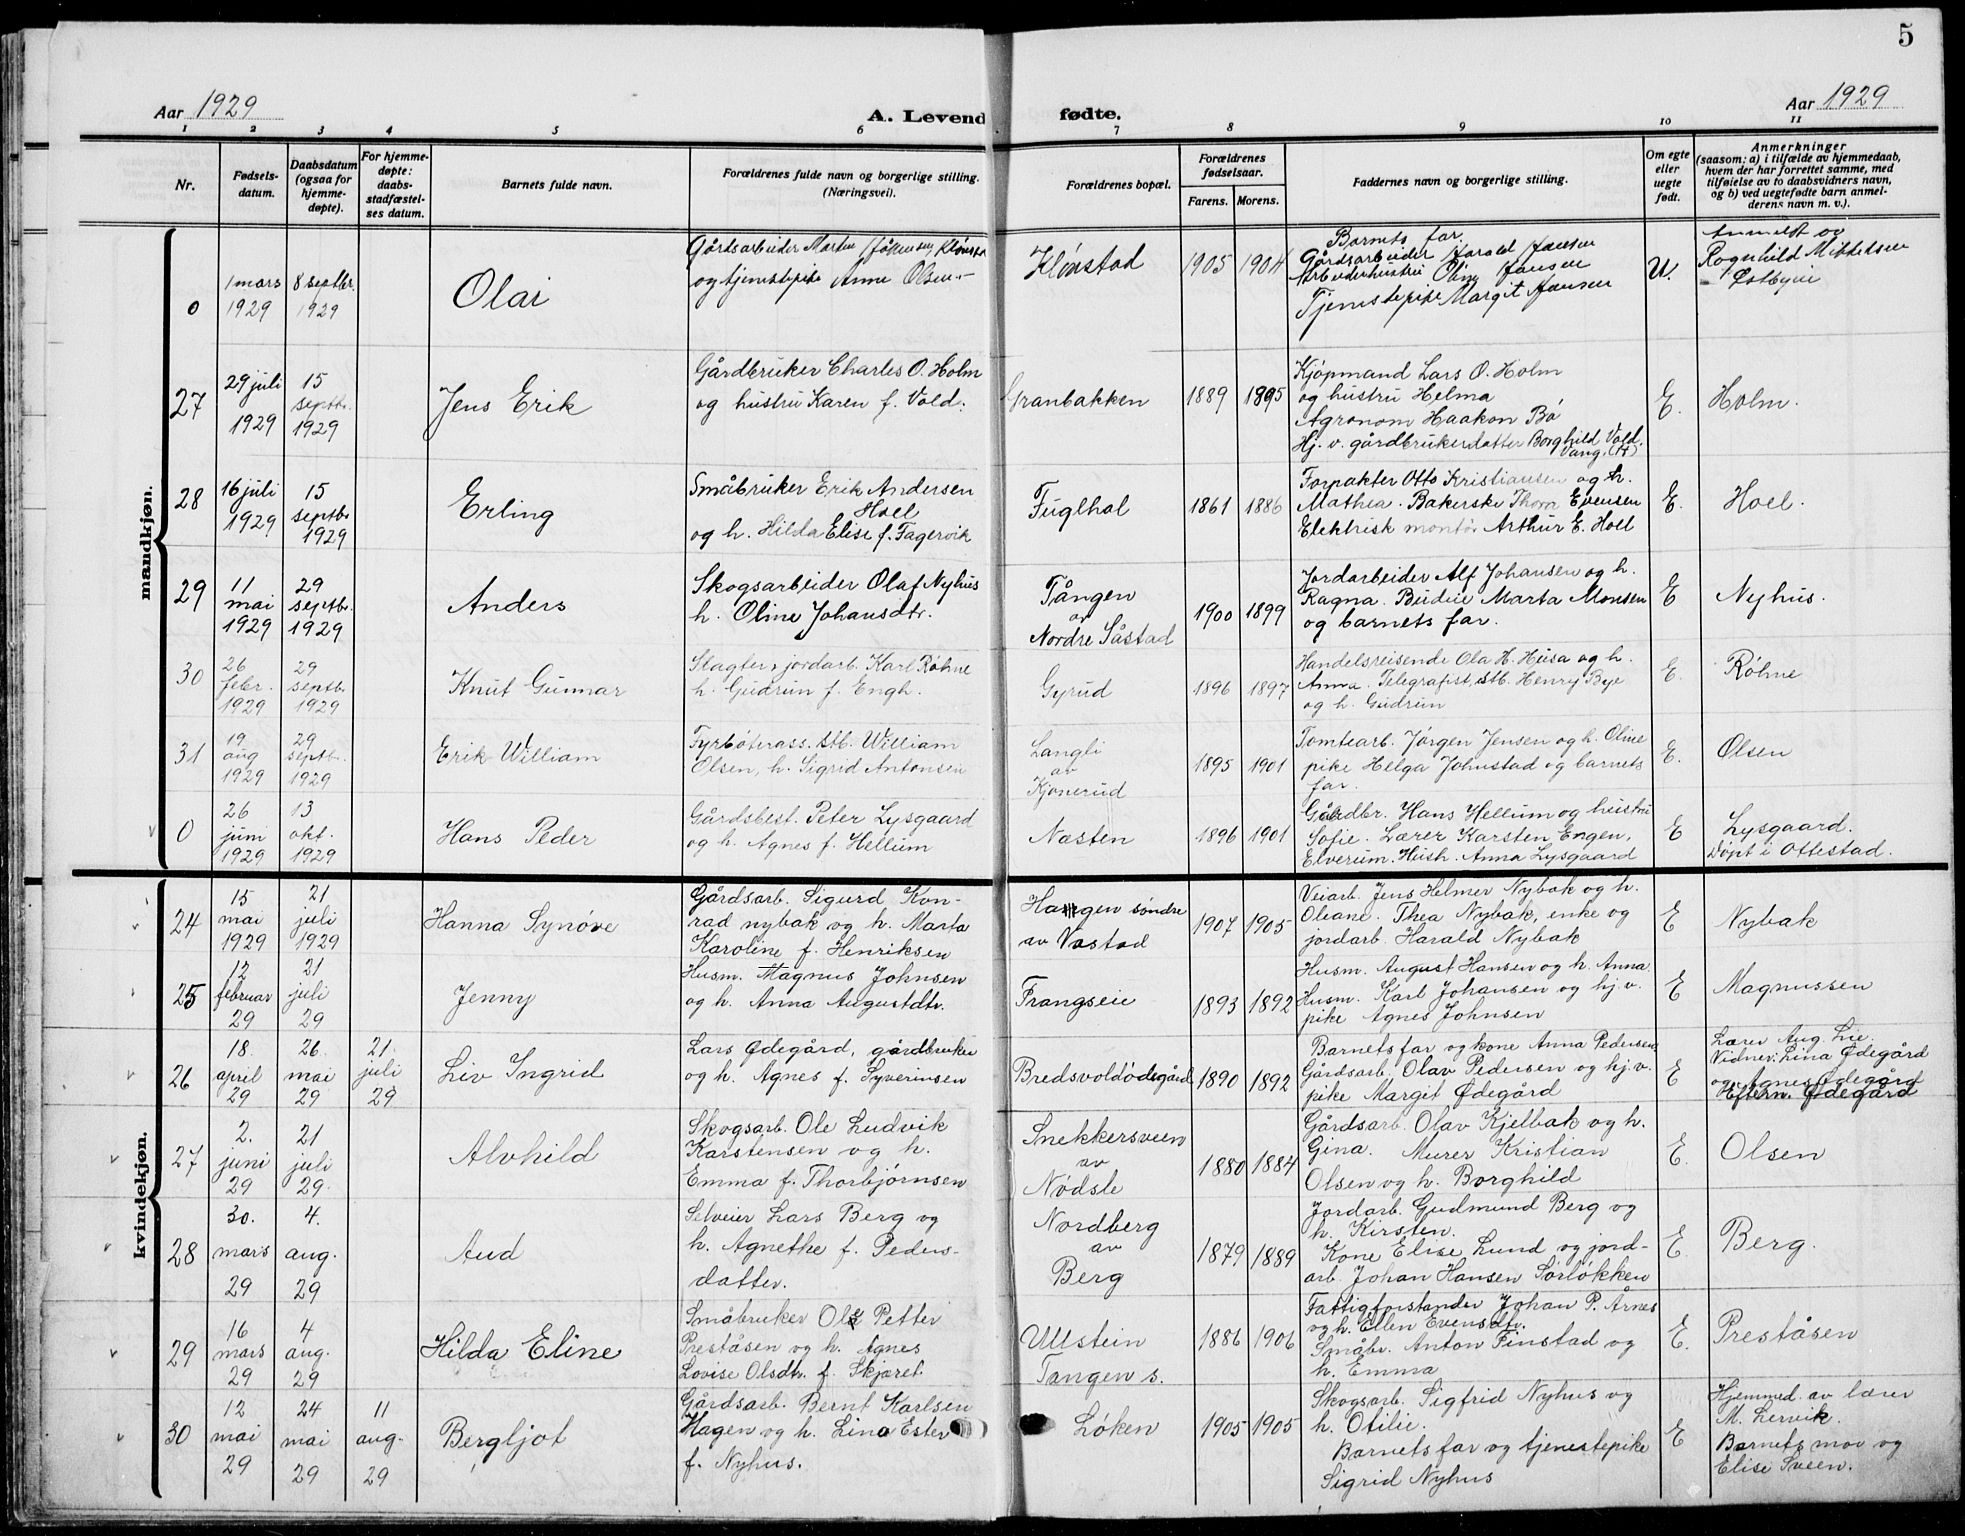 5
Aar 1929
A. Levende fødte.
Aar 1929
1 2 3 4 5 6 7 8 9 10 11
Nr.
Fødsels-
datum.
Daabsdatum
(ogsaa for
hjemme-
døpte).
For hjemme-
døpte:
daabs-
stadfæstel-
ses datum.
Barnets fulde navn.
Forældrenes fulde navn og borgerlige stilling.
(Næringsvei).
Forældrenes bopæl.
Forældrenes
fødselsaar.
Farens. Morens.
Faddernes navn og borgerlige stilling.
Om egte
eller
uegte
født.
Anmerkninger
(saasom: a) i tilfælde av hjemmedaab,
hvem der har forrettet samme, med
tilføielse av to daabsvidners navn,
og b) ved uegtefødte barn anmel-
derens navn m. v.).
mandkjøn.
0
1 mars
1929
8 septbr.
1929
Olai
Gårdsarbeider Martin Klønstad
og tjenestepike Anne Olsen
Klønstad
1905 1904
Barnets far
Gårdsarbeider Harald Jansen
Arbeiderhustru Oline Jansen
Tjenestepike Margit Jansen
U.
Anmeldt og
Ragnhild Mikkelsen
Østbyeie
27
29 juli
1929
15
septbr.
1929
Jens Erik
Gårdbruker Charles O. Holm
og hustru Karen f. Vold.
Granbakken
1889 1895
Kjøpmand Lars O. Holm
og hustru Helma
Agronom Haakon Bø
Hj. v. gårdbrukerdatter Borghild Vold.
Vang. (H)
E.
Holm.
28
16 juli
1929
15
septbr
1929
Erling
Småbruker Erik Andersen
Hoel
og h. Hilda Elise f. Fagervik
Fuglhol
1861 1886
Forpakter Otto Kristiansen og h.
Mathea. Bakerske Thora Evensen
Elektrisk montør Arthur E. Hoel
E.
Hoel.
29
11
mai
1929
29
septbr.
1929
Anders
Skogsarbeider Olaf Nyhus
h. Oline Johansdtr.
Tången
av
Nordre Såstad
1900 1899
Jordarbeider Alf Johansen og h.
Ragna. Budeie Marta Monsen
og barnets far.
E
Nyhus.
30
26
febr.
1929
29
septb.
1929
Knut Gunnar
Slagter, jordarb. Karl Røhne
h. Gudrun f. Engh.
Gyrud
1896 1897
Handelsreisende Ola H. Husa og h.
Anna. Telegrafist, stb. Henry Bye
og h. Gudrun
E.
Røhne
31
19
aug
1929
29
septbr.
1929
Erik William
Fyrbøterass. stb. William
Olsen, h. Sigrid Antonsen
Langli
av
Kjonerud
1895 1901
Tomtearb. Jørgen Jensen og h. Oline
pike Helga Johnstad og barnets
far.
E.
Olsen
0
26
juni
1929
13
okt.
1929
Hans Peder
Gårdsbest. Peter Lysgaard
og h. Agnes f. Hellum
Næsten
1896 1901
Gårdbr. Hans Hellum og hustru
Sofie. Lærer Karsten Engen,
Elverum. Hush. Anna Lysgaard
E
Lysgaard.
Døpt i Ottestad.
kvindekjøn.
24
15
mai
1929
21
juli
1929
Hanna Synøve
Gårdsarb. Sigurd Kon-
rad nybak og h. Marta
Karoline f. Henriksen
Haugen søndre
av Vastad
1907 1905
Veiarb. Jens Helmer Nybak og h.
Oleane. Thea Nybak, enke og
jordarb. Harald Nybak
E
Nybak
25
12
februar
29
21
juli
29
Jenny
Husm. Magnus Johnsen
og h. Anna Augustdtr.
Frangseie
1893 1892
Husm. August Hansen og h. Anna.
Husm. Karl Johansen og hj. v.
pike Agnes Johnsen
E
Magnussen
26
18.
april
29
26.
mai
29
21.
juli
29
Liv Ingrid
Lars Ødegård, gårdbruker
og h. Agnes f. Syverinsen
Bredsvoldødegård
1890 1892
Barnets far og kone Anna Pedersen
Gårdsarb. Olav Pedersen og hj. v.
pike Margit Ødegård
E
Lærer Aug. Lie.
Vidner: Lina Ødegård
og Agnes Ødegård
Eftern. Ødegård
27
2.
juni
29
21
juli
29.
Alvhild
Skogsarb. Ole Ludvik
Karstensen og h.
Emma f. Thorbjørnsen
Snekkersveen
av
Nødsle
1880 1884
Gårdsarb. Olav Kjelbak og h.
Gina. Murer Kristian
Olsen og h. Borghild
E.
Olsen
28
30.
mars
29
4.
aug.
29
Aud
Selveier Lars Berg og
h. Agnethe f. Peders-
datter.
Nordberg
av
Berg
1879 1889
Jordarb. Gudmund Berg og
h. Kirsten.
Kone Elise Lund og jord-
arb. Johan Hansen Sørløkken
E.
Berg.
29
16
mars
29
4
aug.
29
Hilda Eline
Småbruker Ole Petter
Preståsen og h. Agnes
Lovise Olsdtr. f. Skjæret.
Ullstein
Tangen s.
1886 1906
Fattigforstander Johan P. Årnes
og h. Ellen Evensdtr.
Småbr. Anton Finstad og
h. Emma
E.
Preståsen
30
12
mai
29
24
mai
29
11
aug.
29
Bergljot
Gårdsarb. Bernt Karlsen
Hagen og h. Lina Ester
f. Nyhus.
Løken
1905 1905
Skogsarb. Sigfrid Nyhus og
h. Otilie.
Barnets far og tjenestepike
Sigrid Nyhus
E
Hjemmed. av lærer
M. Lervik.
Barnets mor og
Elise Sveen.